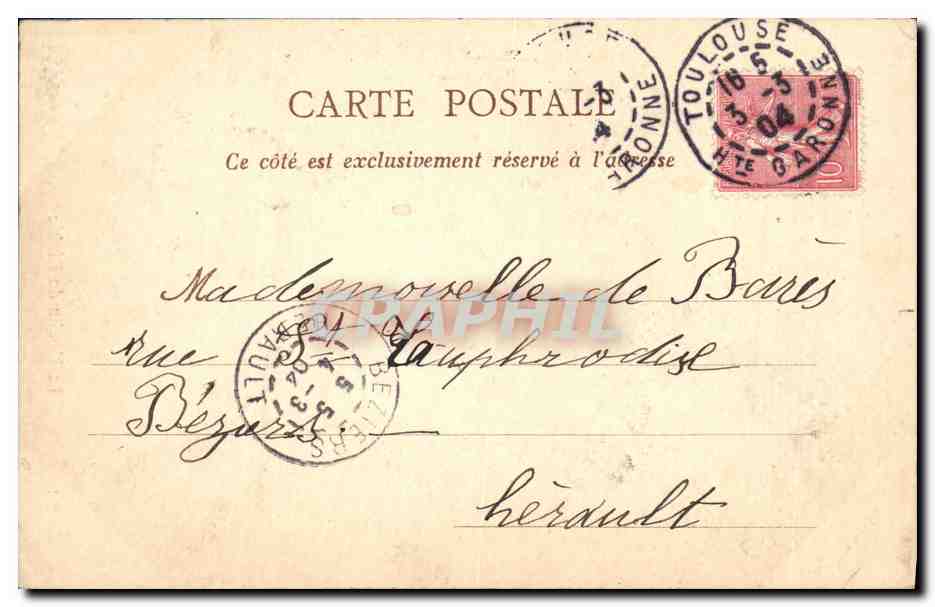 CARTE POSTALE
Ce côté est exclusivement réservé à l'adresse
TOULOUSE
16 5
3 -3
04
Hte GARONNE
10
RONNE
CPAPHIL
Mademoiselle de Barès
rue St
Béziers.
hérault
BEZIERS
5 5
4 -3
04
HERAULT